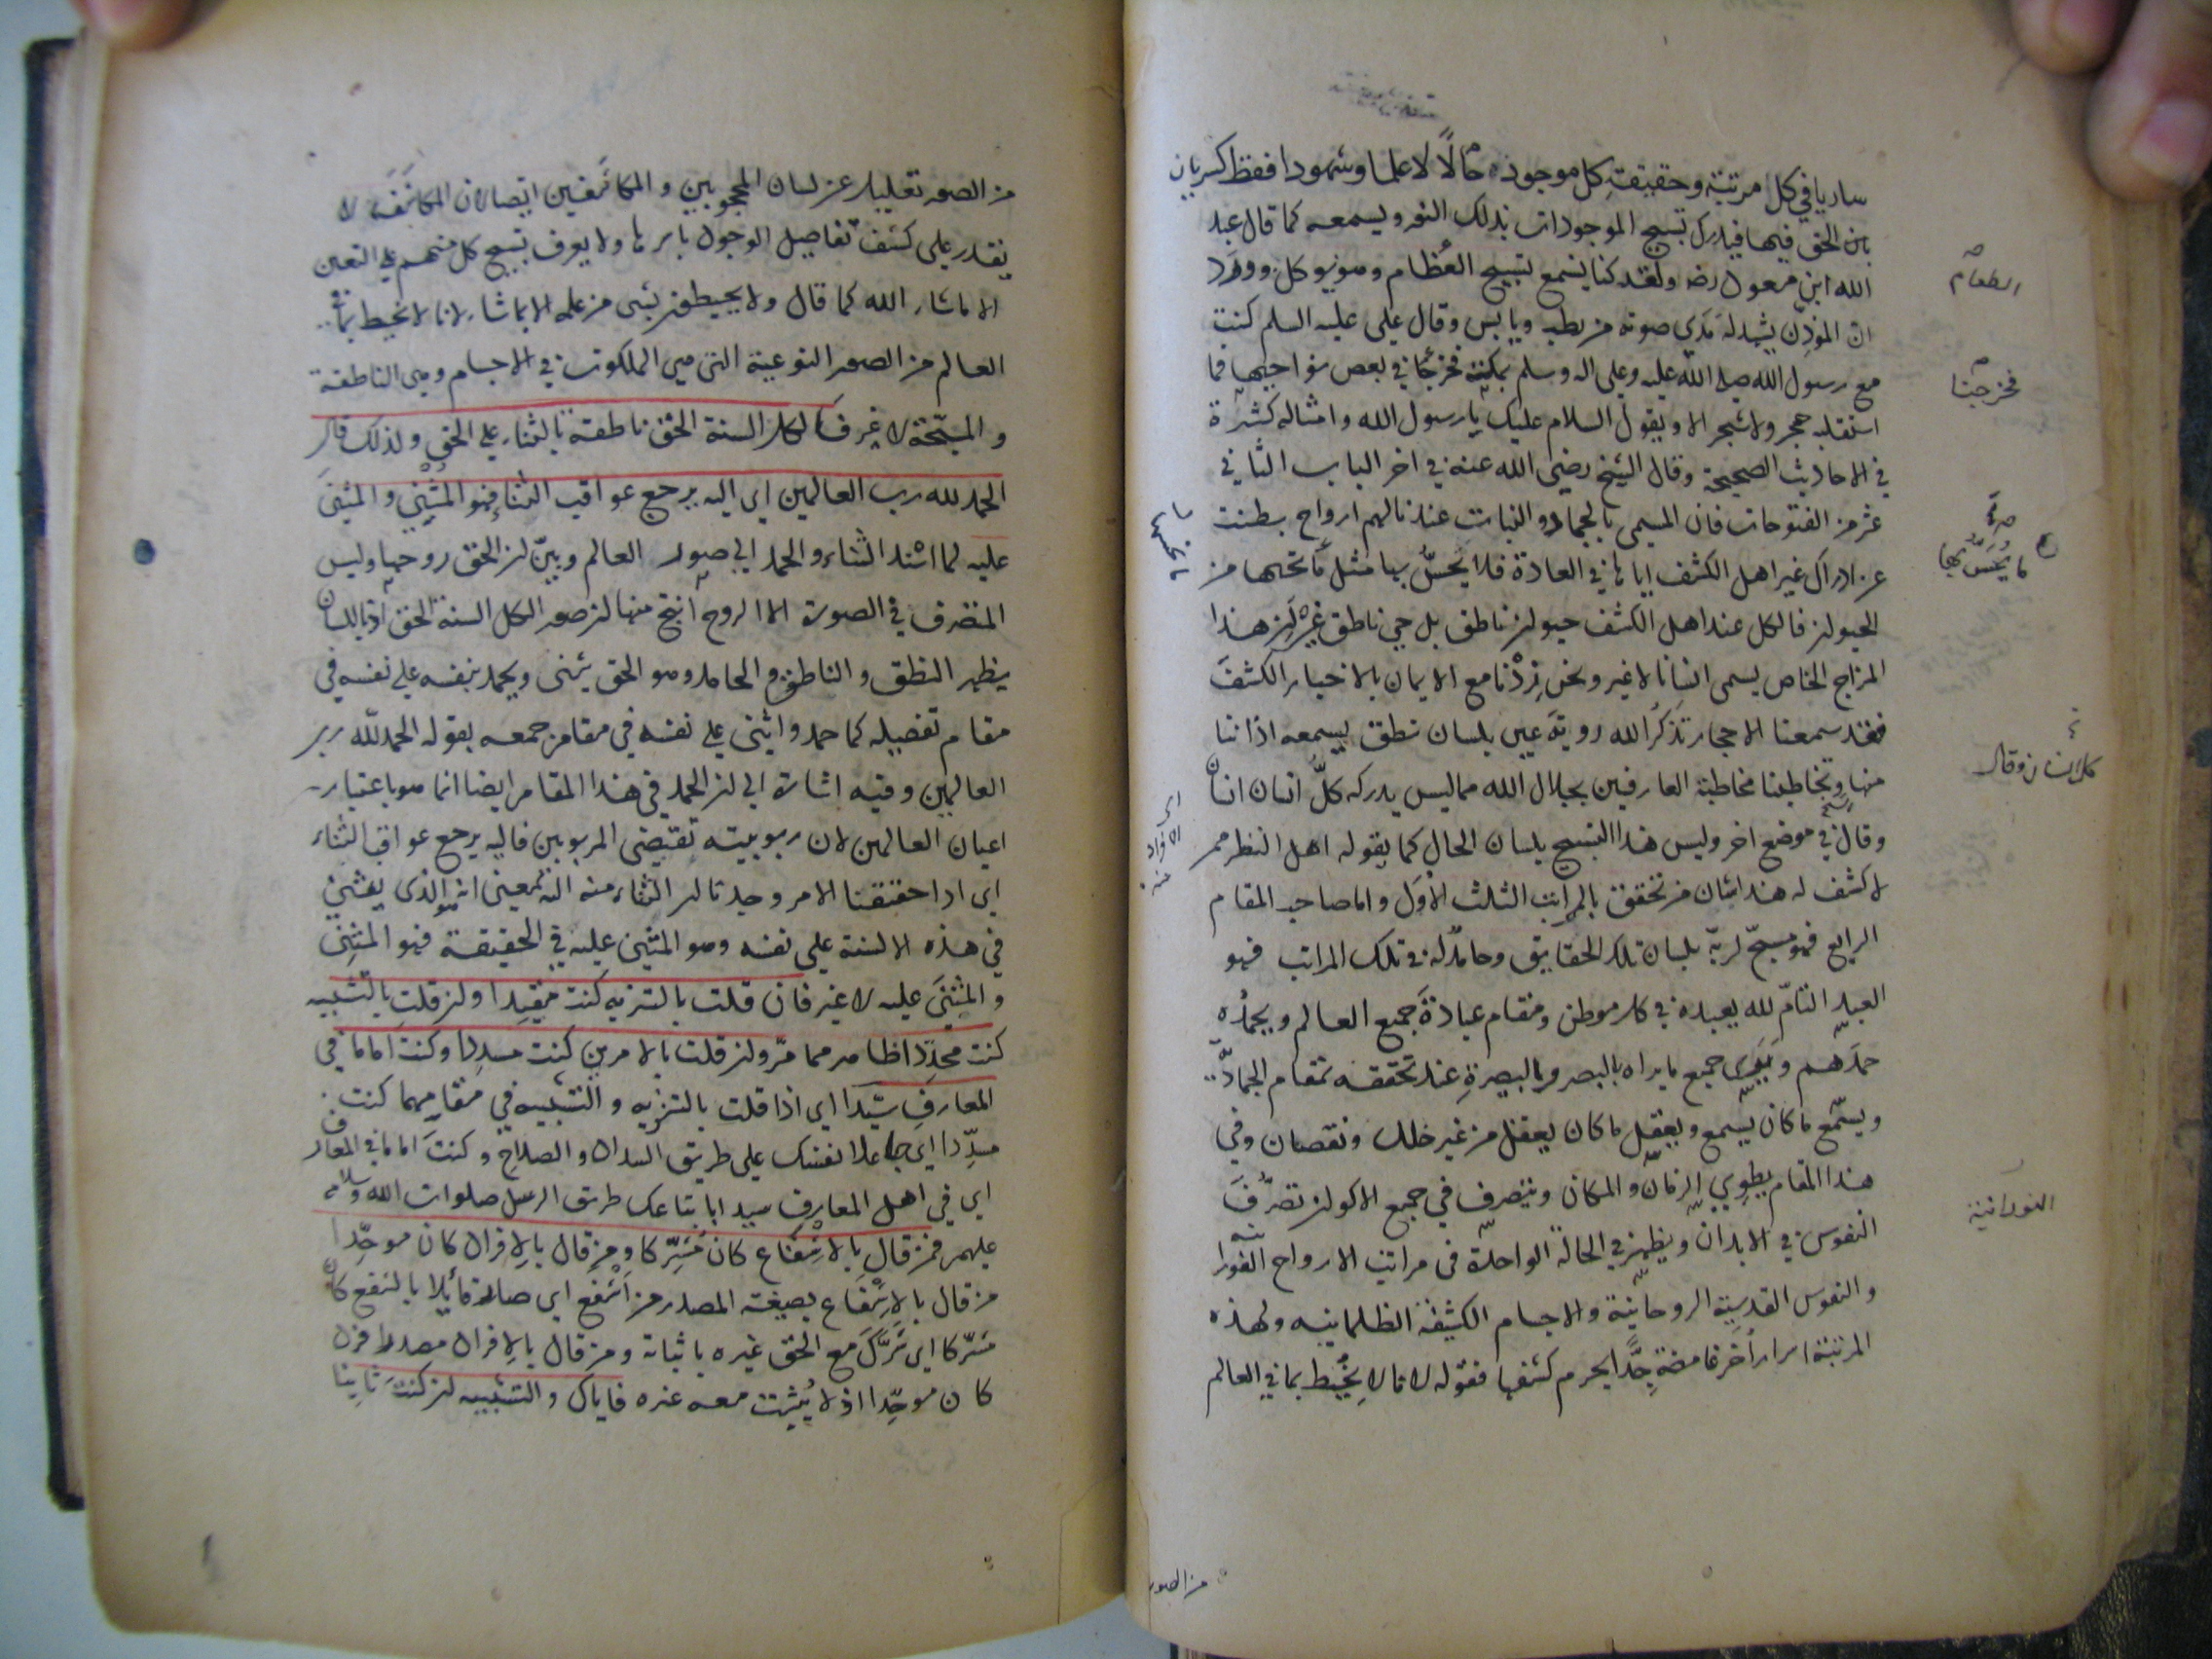 ساريا في كل مرتبة وحقيقة كل موجود حالًا لا علما وشهودا فقط كسريان
الحق فيها فيدرك تسبيح الموجودات بذلك النور ويسمعه كما قال عبد
الله ابن مسعود رض ولقد كنا نسمع تسبيح العُظام وهو يوكل وورد
ان الموذّن يشهد له مَدَي صوته من رطب ويابس وقال علي عليه السلم كنت
مع رسول الله صلى الله عليه وعلى اله وسلم بمكة فخرجنا في بعض نواحيها فما
استقبله حجر ولا شجر الا ويقول السلام عليك يا رسول الله وامثاله كثيرة
في الاحاديث الصحيحة وقال الشيخ رضي الله عنه في اخر الباب الثاني
عشر من الفتوحات فان المسمى بالجماد والنبات عندنا لهم ارواح بطنت
عن ادراك غير اهل الكشف اياها في العادة فلا يُحسّ بها مثل ما تحسها من
الحيوان فالكل عند اهل الكشف حيوان ناطق بل حي ناطق غير ان هذا
المزاج الخاص يسمى انسانا لا غير ونحن زِدْنا مع الايمان بالاخبار الكشفَ
فقد سمعنا الاحجار تذكر الله روية عين بلسان نطق يسمعه اذاننا
منها وتخاطبنا مخاطبة العارفين بجلال الله مما ليس يدركه كلّ انسان
وقال في موضع اخر وليس هذا التسبيح بلسان الحال كما يقوله اهل النظر ممن
لا كشف له هذا شان من تحقق بالمراتب الثلث الاُوَل واما صاحب المقام
الرابع فهو مسبّح لربّه بلسان تلك الحقايق وحامد له في تلك المراتب فهو
العبد التامّ لله يعبده في كل موطن ومقام عبادةَ جميع العالم ويحمدُه
حمدَهم ويَرَى جميع ما يراه بالبصر وبالبصيرةِ عند تحققه بمقام الجماد
ويسمع ما كان يسمع ويعقل ما كان يعقل من غير خلل ونقصان وفي
هذا المقام يطوي الزمان والمكان ويتصرف في جميع الاكوان تصرُّفَ
النفوس في الابدان ويظهر في الحالة الواحدة في مراتب الارواح
والنفوس القدسية الروحانية والاجسام الكثيفة الظلمانيه ولهذه
المرتبة اسرار اُخَر غامضة جدًّا يحرم كشفها فقوله لانا لا نُحيط بما في العالم
من الصور
الطعام
فخرجنا
ما يُحَسّ بها
كل انسان وقال
النورانية
من الصور تعليل عن لسان المحجوبين والمكاشفين ايضا لان المكاشَفَ لا
يقدر على كشف تفاصيل الوجود باسرها ولا يعرف تسبيح كل منهم علي التعين
الا ما شاء الله كما قال ولا يحيطون بشي من علمه الا بما شاء لانا لا نحيط بما في
العالم من الصور النوعية التي هي الملكوت في الاجسام وهي الناطقة
و المسبّحة لا غير فالكل السنة الحق ناطقة بالثناء علي الحق ولذلك قال
الحمد لله رب العالمين اي اليه يرجع عواقب الثناء فهو المُثْنِي والمُثْنَى
عليه لما اسند الثناء والحمد الي صور العالم وبيّن ان الحق روحها وليس
المتصرف في الصورة الا الروح انتج منها ان صور الكل السنة الحق اذ باللسان
يظهر النطق والناطق والحامد وهو الحق يثنى ويحمد بنفسه علي نفسه في
مقام تفصيله كما حمد واثنى علي نفسه في مقام جمعه بقوله الحمد لله رب
العالمين وفيه اشارة الي ان الحمد في هذا المقام ايضا انما هو باعتبار
اعيان العالمين لان ربوبيته تقتضى المربوبين فاليه يرجع عواقب الثناء
اي اذا حققنا الامر وجدنا ان الثناء منه اليه بمعنى انه هو الذى يثنى
في هذه الالسنة علي نفسه وهو المثنى عليه في الحقيقة فهو المثنِي
و المثنَى عليه لا غير فان قلت بالتنزيه كنت مقيدا وان قلت بالتشبيه
كنت محدّدا ظاهر مما مرّ وان قلت بالامرين كنت مسددا وكنت اماما في
المعارف سيّدا اي اذا قلت بالتنزيه والتشبيه في مقاميهما كنت
مسدّدا اي جاعلا نفسك علي طريق السداد والصلاح وكنتَ اماما في المعارف
اي في اهل المعارف سيدا باتباعك طريق الرسل صلوات الله وسلامه
عليهم فمن قال بالاشفاع كان مُشَرِّكا ومن قال بالاِفراد كان موحّدا
من قال بالاِشْفاع بصيغة المصدر من اَشْفَع اي صار قائلا بالشفع كان
مشرّكا اي شَرَّكَ مع الحق غيره باثباته ومن قال بالاِفراد مصدر افرد
كان موحّدا اذ لا يُثبِت معه غيره فاياك والتشبيه ان كنتَ ثانيا